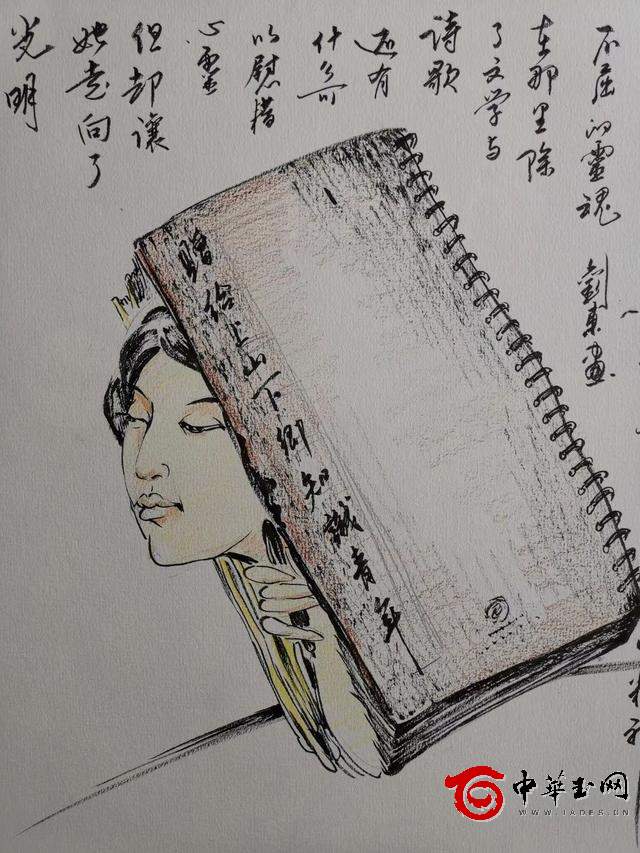 不屈的靈魂 劉東画
在那里除
了文学与
诗歌
还有
什么可
以慰藉
心灵
但却讓
她走向了
光明
贈给上山下鄉知識青年
中華玉网
WWW.JADES.CN